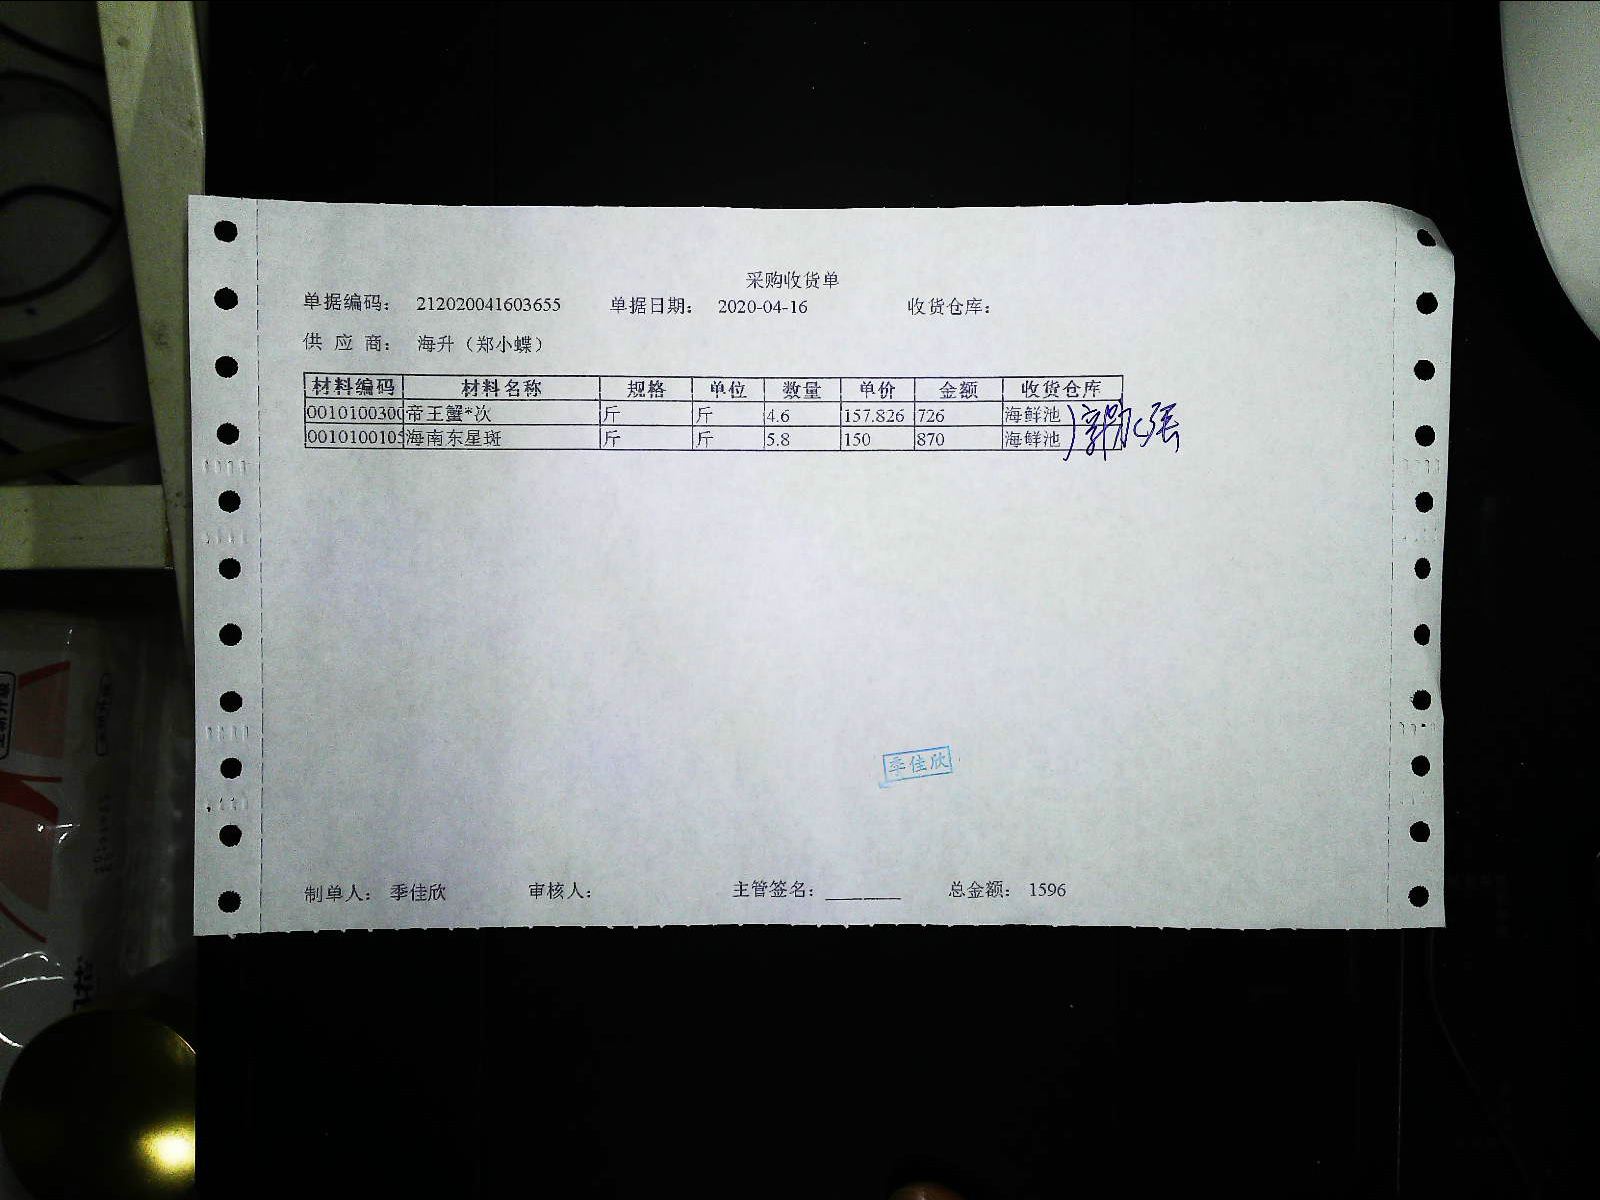 采购收货单
单据编码： 212020041603655 单据日期： 2020-04-16 收货仓库：
供 应 商： 海升（郑小蝶）
材料编码 材料名称 规格 单位 数量 单价 金额 收货仓库
0010100300 帝王蟹*次 斤 斤 4.6 157.826 726 海鲜池
0010100105 海南东星斑 斤 斤 5.8 150 870 海鲜池
季佳欣
制单人： 季佳欣 审核人： 主管签名： ________ 总金额： 1596